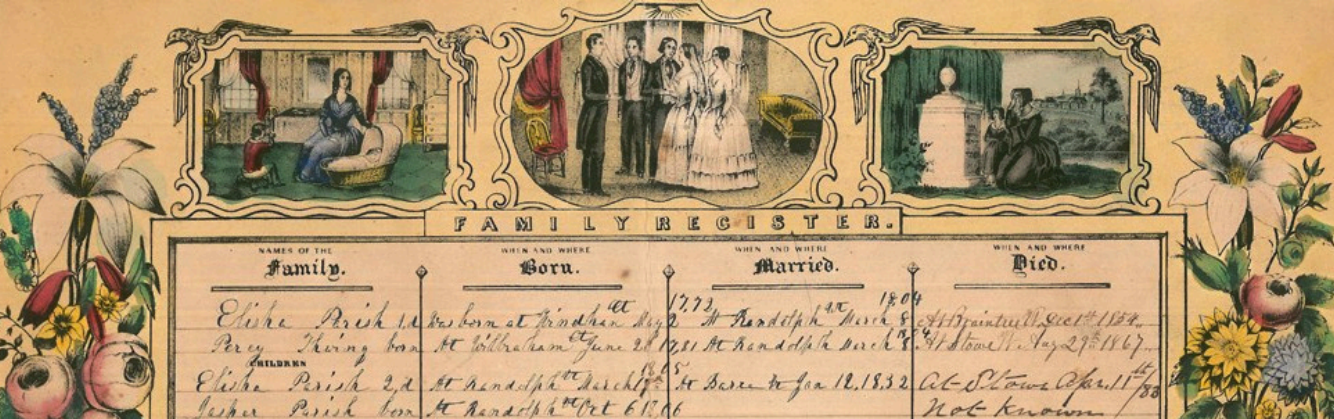 FAMILY REGISTER.
NAMES OF THE Family. WHEN AND WHERE Born. WHEN AND WHERE Married. WHEN AND WHERE Died.
Elisha Parish 1,d Was born at Windham Ct May 2 1772 At Randolph Vt March 8 1804 At Braintree Vt Dec 1st 1834
Percy Thwing born At Wilbraham June 20 1781 At Randolph March 8 At Stowe Vt Aug 29th 1867
CHILDREN
Elisha Parish 2,d At Randolph Vt March 1805 At Barre Vt Jan 12, 1832 at Stowe Apr. 11th /83
Jasper Parish born At Randolph Vt Oct 6 Not Known